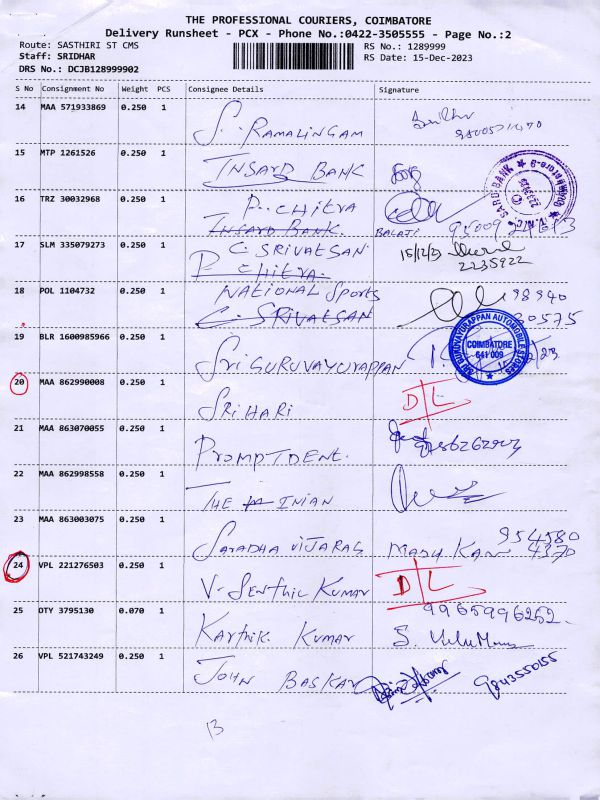 THE PROFESSIONAL COURIERS, COIMBATORE
Delivery Runsheet - PCX - Phone No.:0422-3505555 - Page No.:2
Route: SASTHIRI ST CMS RS No.: 1289999
Staff: SRIDHAR RS Date: 15-Dec-2023
DRS No.: DCJB128999902
S No Consignment No Weight PCS Consignee Details Signature
14 MAA 571933869 0.250 1
S. RAMALINGAM
15 MTP 1261526 0.250 1
BANK
16 TRZ 30032968 0.250 1
P. CHITRA
BANK. BALAJI
17 SLM 335079273 0.250 1
C. SRIVATSAN 15/12/23
P CHITRA. 2235922
18 POL 1104732 0.250 1
NATIONAL Sports
C. SRIVATSAN
19 BLR 1600985966 0.250 1
SRI GURUVAYURAPPAN
SRI GURUVAYURAPPAN AUTOMOBILE STORES
COIMBATORE
641 009
20 MAA 862990008 0.250 1
SRI HARI D/L
21 MAA 863070055 0.250 1
PROMPT DENT.
22 MAA 862998558 0.250 1
THE INIAN
23 MAA 863003075 0.250 1
954580
4370
24 VPL 221276503 0.250 1
V. SENTHIL KUMAR D/L
25 OTY 3795130 0.070 1 9965996252.
KARTHIK. KUMAR
26 VPL 521743249 0.250 1
JOHN BASKAR 9843550155
13